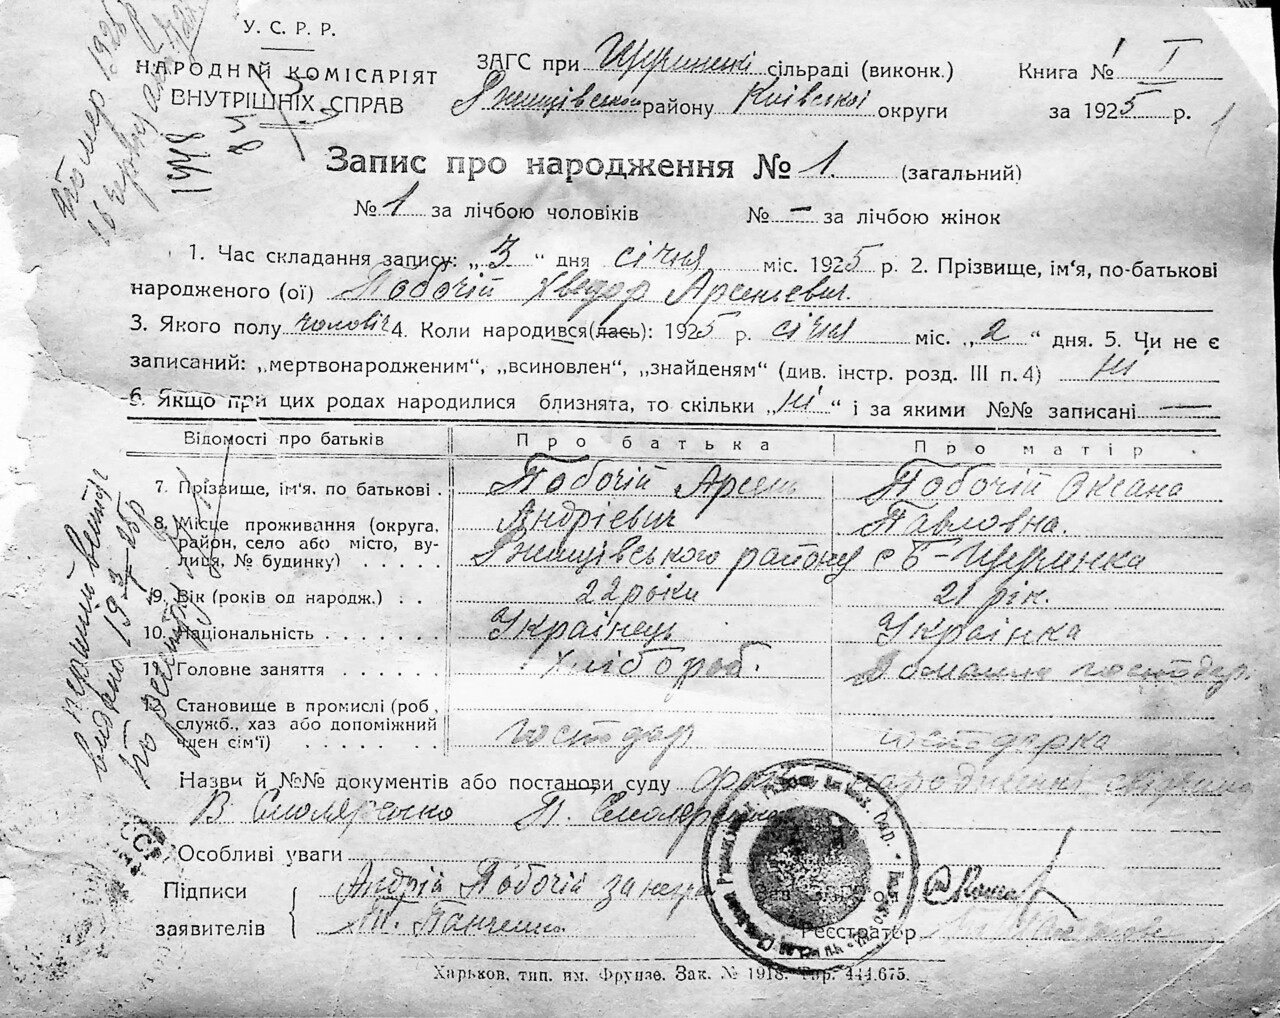 У. С. Р. Р.
НАРОДНІЙ КОМІСАРІЯТ
ВНУТРІШНІХ СПРАВ
ЗАГС при сільраді (виконк.)
району Київської округи
Книга № I
за 1925 р.
Запис про народження № 1. (загальний)
№ 1 за лічбою чоловіків № — за лічбою жінок
1. Час складання запису: „3“ дня січня міс. 1925 р. 2. Прізвище, ім‘я, по-батькові
народженого (ої) Побочій Хведор Арсенієвич.
3. Якого полу чоловіч 4. Коли народився(лась): 1925 р. січня міс. „2“ дня. 5. Чи не є
записаний: „мертвонародженим“, „всиновлен“, „знайденям“ (див. інстр. розд. III п. 4) Ні
6. Якщо при цих родах народилися близнята, то скільки „Ні“ і за якими №№ записані —
Відомості про батьків Про батька Про матір
7. Прізвище, ім‘я. по батькові . Побочій Арсень Побочій Оксана
Андрієвич Павловна.
8. Місце проживання (округа, район, село або місто, ву-
лиця, № будинку) . . . . . району с
9. Вік (років од народж.) . . 22 роки 21 рік.
10. Національність . . . . . . Українець Українка
11. Головне заняття . . . . . Хлібороб. Домашня господар.
12. Становище в промислі (роб.,
служб., хаз або допоміжний
член сім‘ї) . . . . . . господар господарка
Назви й №№ документів або постанови суду
В Смоляренко П. Смоляренко
Особливі уваги
Підписи Андрій Побочій
заявителів Т. Панченко
Реєстратор
Харьков, тип. им. Фрунзе. Зак. № 1918. Тир. 444.675.
Помер 1925 р
16 червня
1448